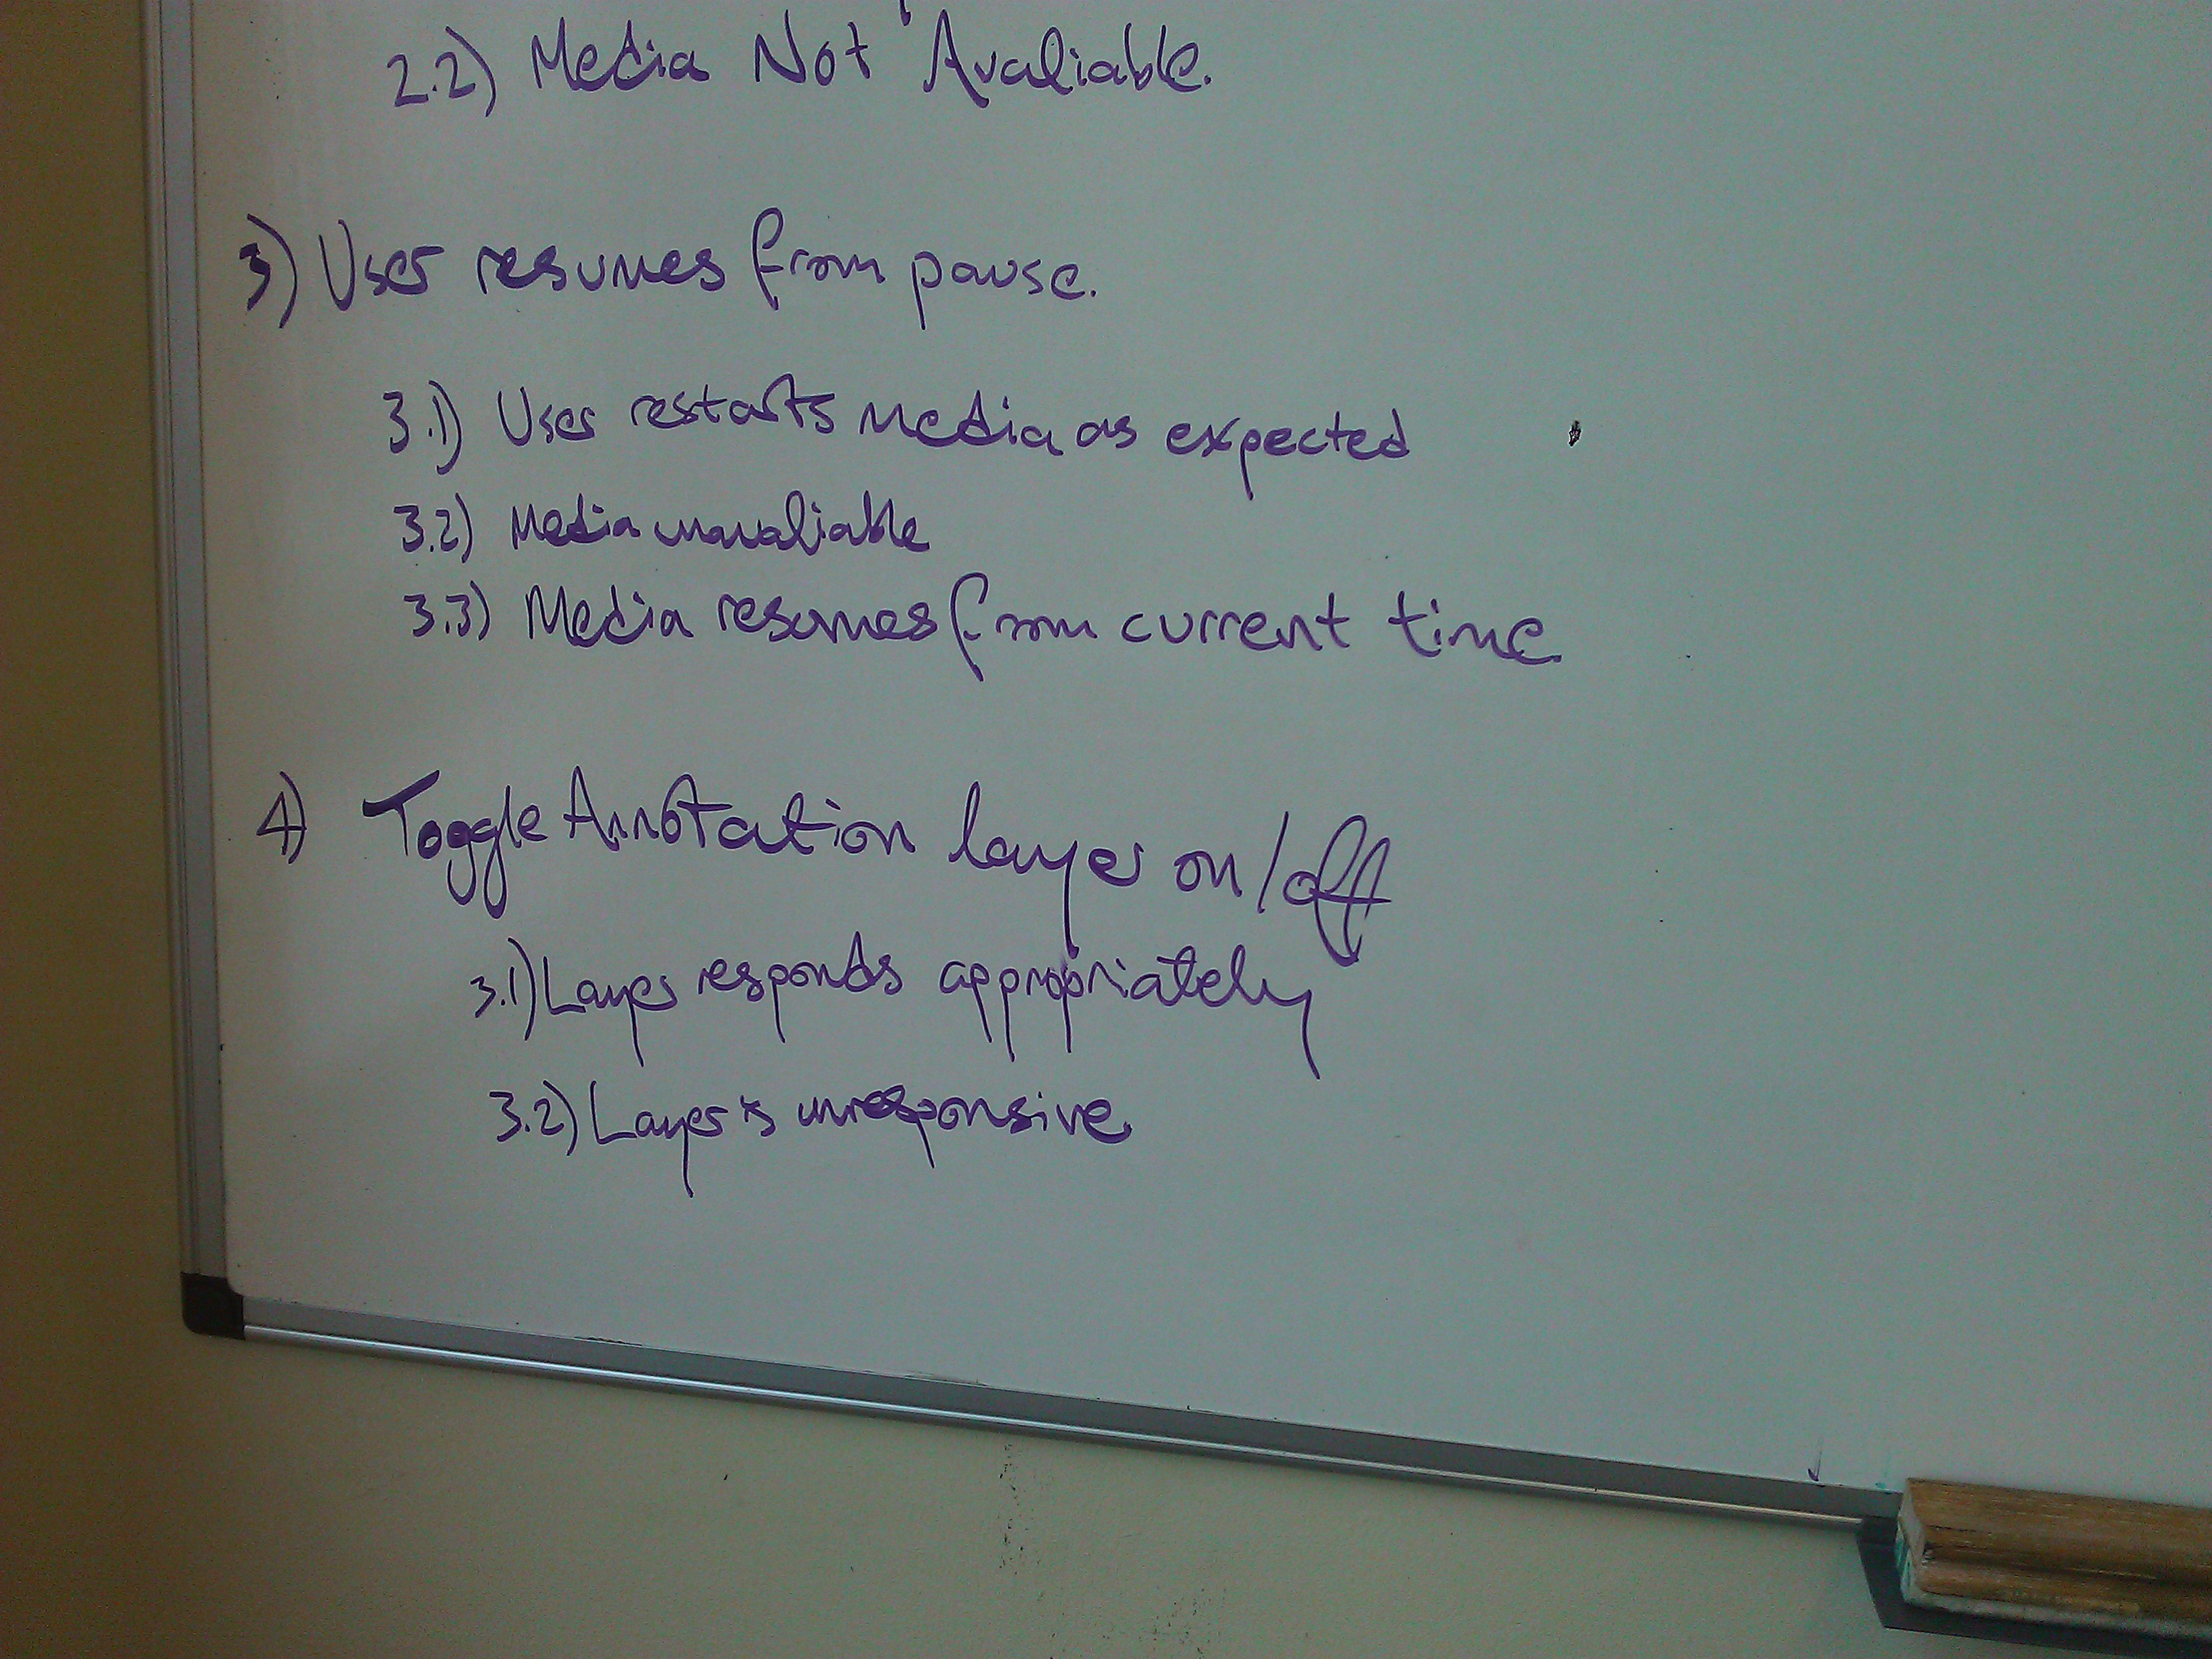 2.2) Media Not Avaliable.
3) User resumes from pause.
3.1) User restarts media as expected
3.2) Media unavaliable
3.3) Media resumes from current time.
4) Toggle Annotation layer on/off
3.1) Layer responds appropriately
3.2) Layer is unresponsive.